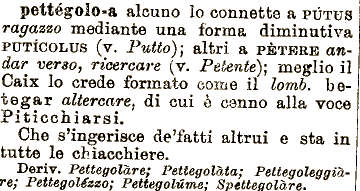 pettégolo-a alcuno lo connette a PÚTUS
ragazzo mediante una forma diminutiva
PUTÍCOLUS (v. Putto); altri a PÈTERE an-
dar verso, ricercare (v. Petente); meglio il
Caix lo crede formato come il lomb. be-
tegar altercare, di cui è cenno alla voce
Piticchiarsi.
Che s'ingerisce de'fatti altrui e sta in
tutte le chiacchiere.
Deriv. Pettegolàre; Pettegolàta; Pettegoleggià-
re; Pettegolézzo; Pettegolúme; Spettegolàre.